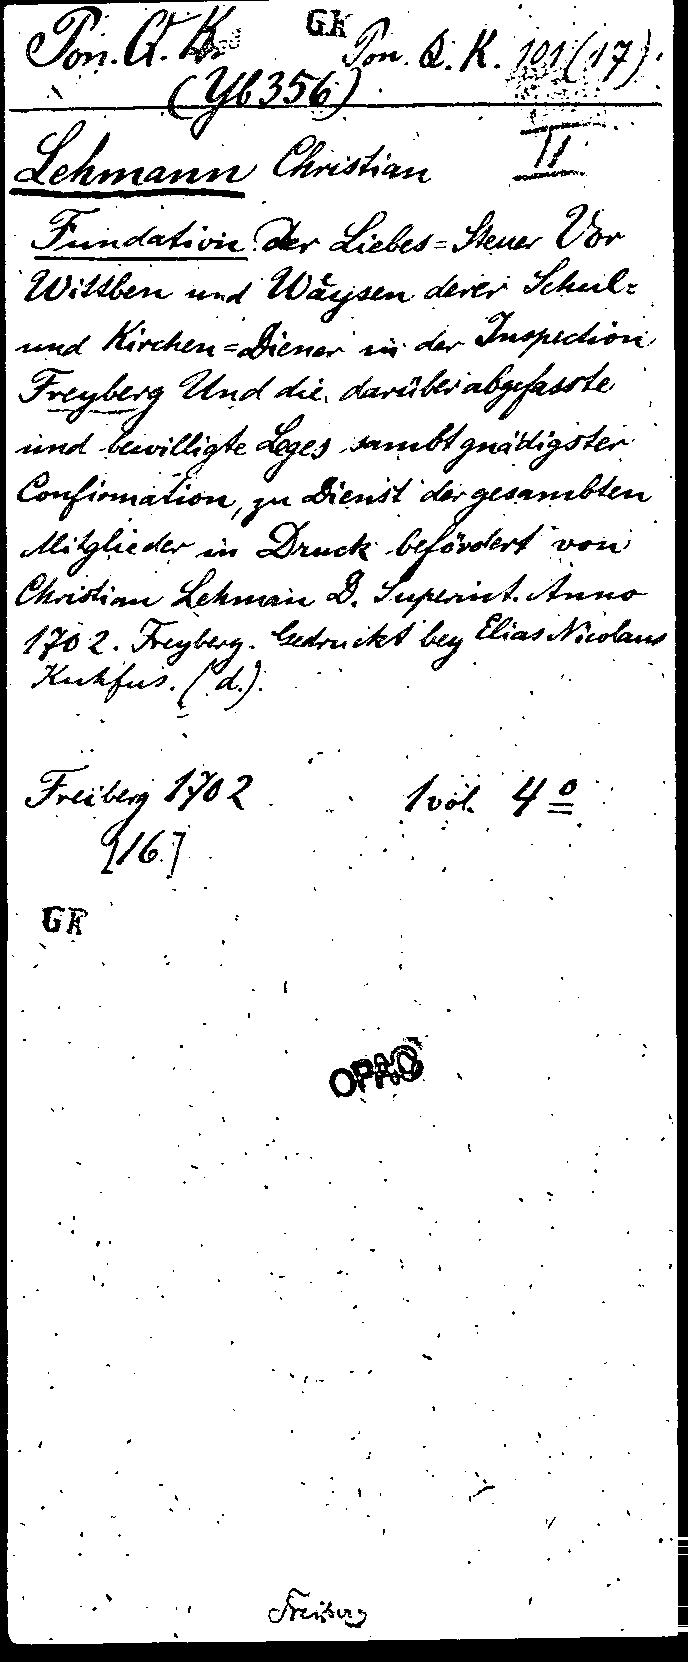 Pon. Q. K. GK Pon. Q. K. 101 (17).
(Yb 356)
II
Lehmann Christian
Fundation Der Liebes=Steuer Vor
Wittben und Wäysen derer Schul=
und Kirchen=Diener in der Inspection
Freyberg Und die darüber abgefasste
und bewilligte Leges sambt gnädigster
Confirmation, zu Dienst der gesambten
Mitglieder in Druck befördert von
Christian Lehman D. Superint. Anno
1702. Freyberg. Gedruckt bey Elias Nicolaus
Kuhfus. (d.).
Freiberg 1702 1 vol. 4º
[16]
GK
OPAC
Freiberg